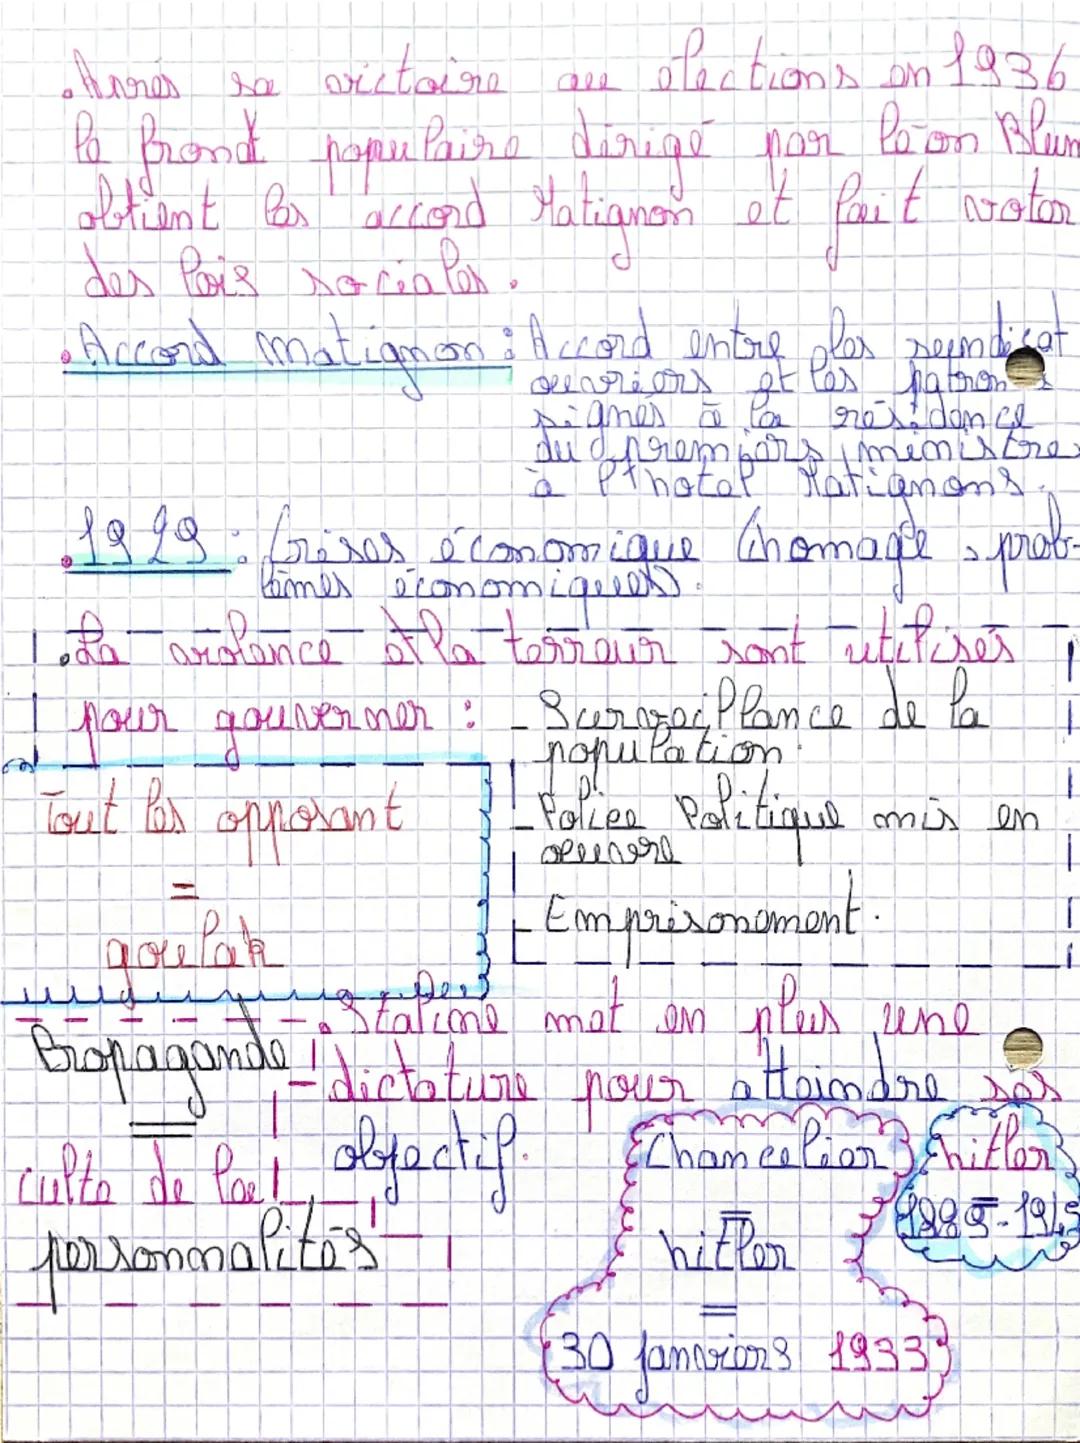 . Après sa victoire au élections en 1936
le front populaire dirigé par léon Blum
obtient les accord Matignon et fait voter
des lois sociales.
. Accord matignon : Accord entre les syndicat
ouvriers et les patrons
signés à la résidence
du premiers ministre
à l'hotel Matignons.
. 1929 : Crises économique Chomage, prob-
lèmes économiques.
. La violence et la terreur sont utilisés
pour gouverner : - Surveillance de la
population.
- Police Politique mis en
oeuvre
- Emprisonement.
Tout les opposant
=
goulak
. Staline met en plus une
dictature pour atteindre ses
objectif.
Propagande
=
culte de la
personnalités
Chancelier
=
hitler
=
30 janviers 1933
hitler
=
1889-1945